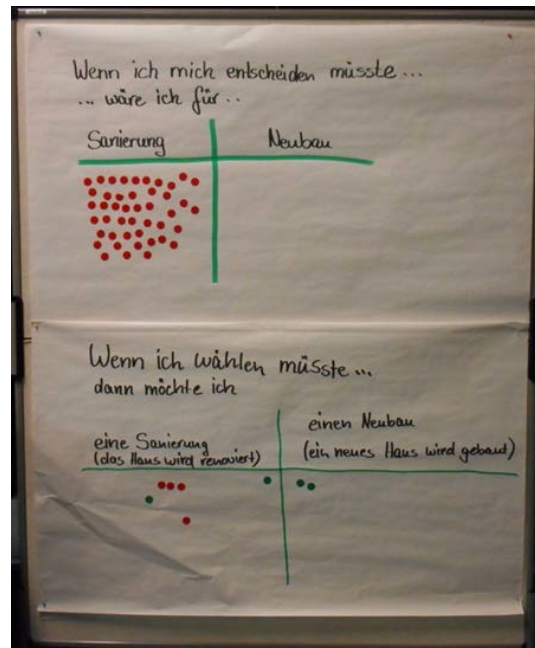 Wenn ich mich entscheiden müsste...
... wäre ich für..
Sanierung
Neubau
Wenn ich wählen müsste...
dann möchte ich
eine Sanierung
(das Haus wird renoviert)
einen Neubau
(ein neues Haus wird gebaut)